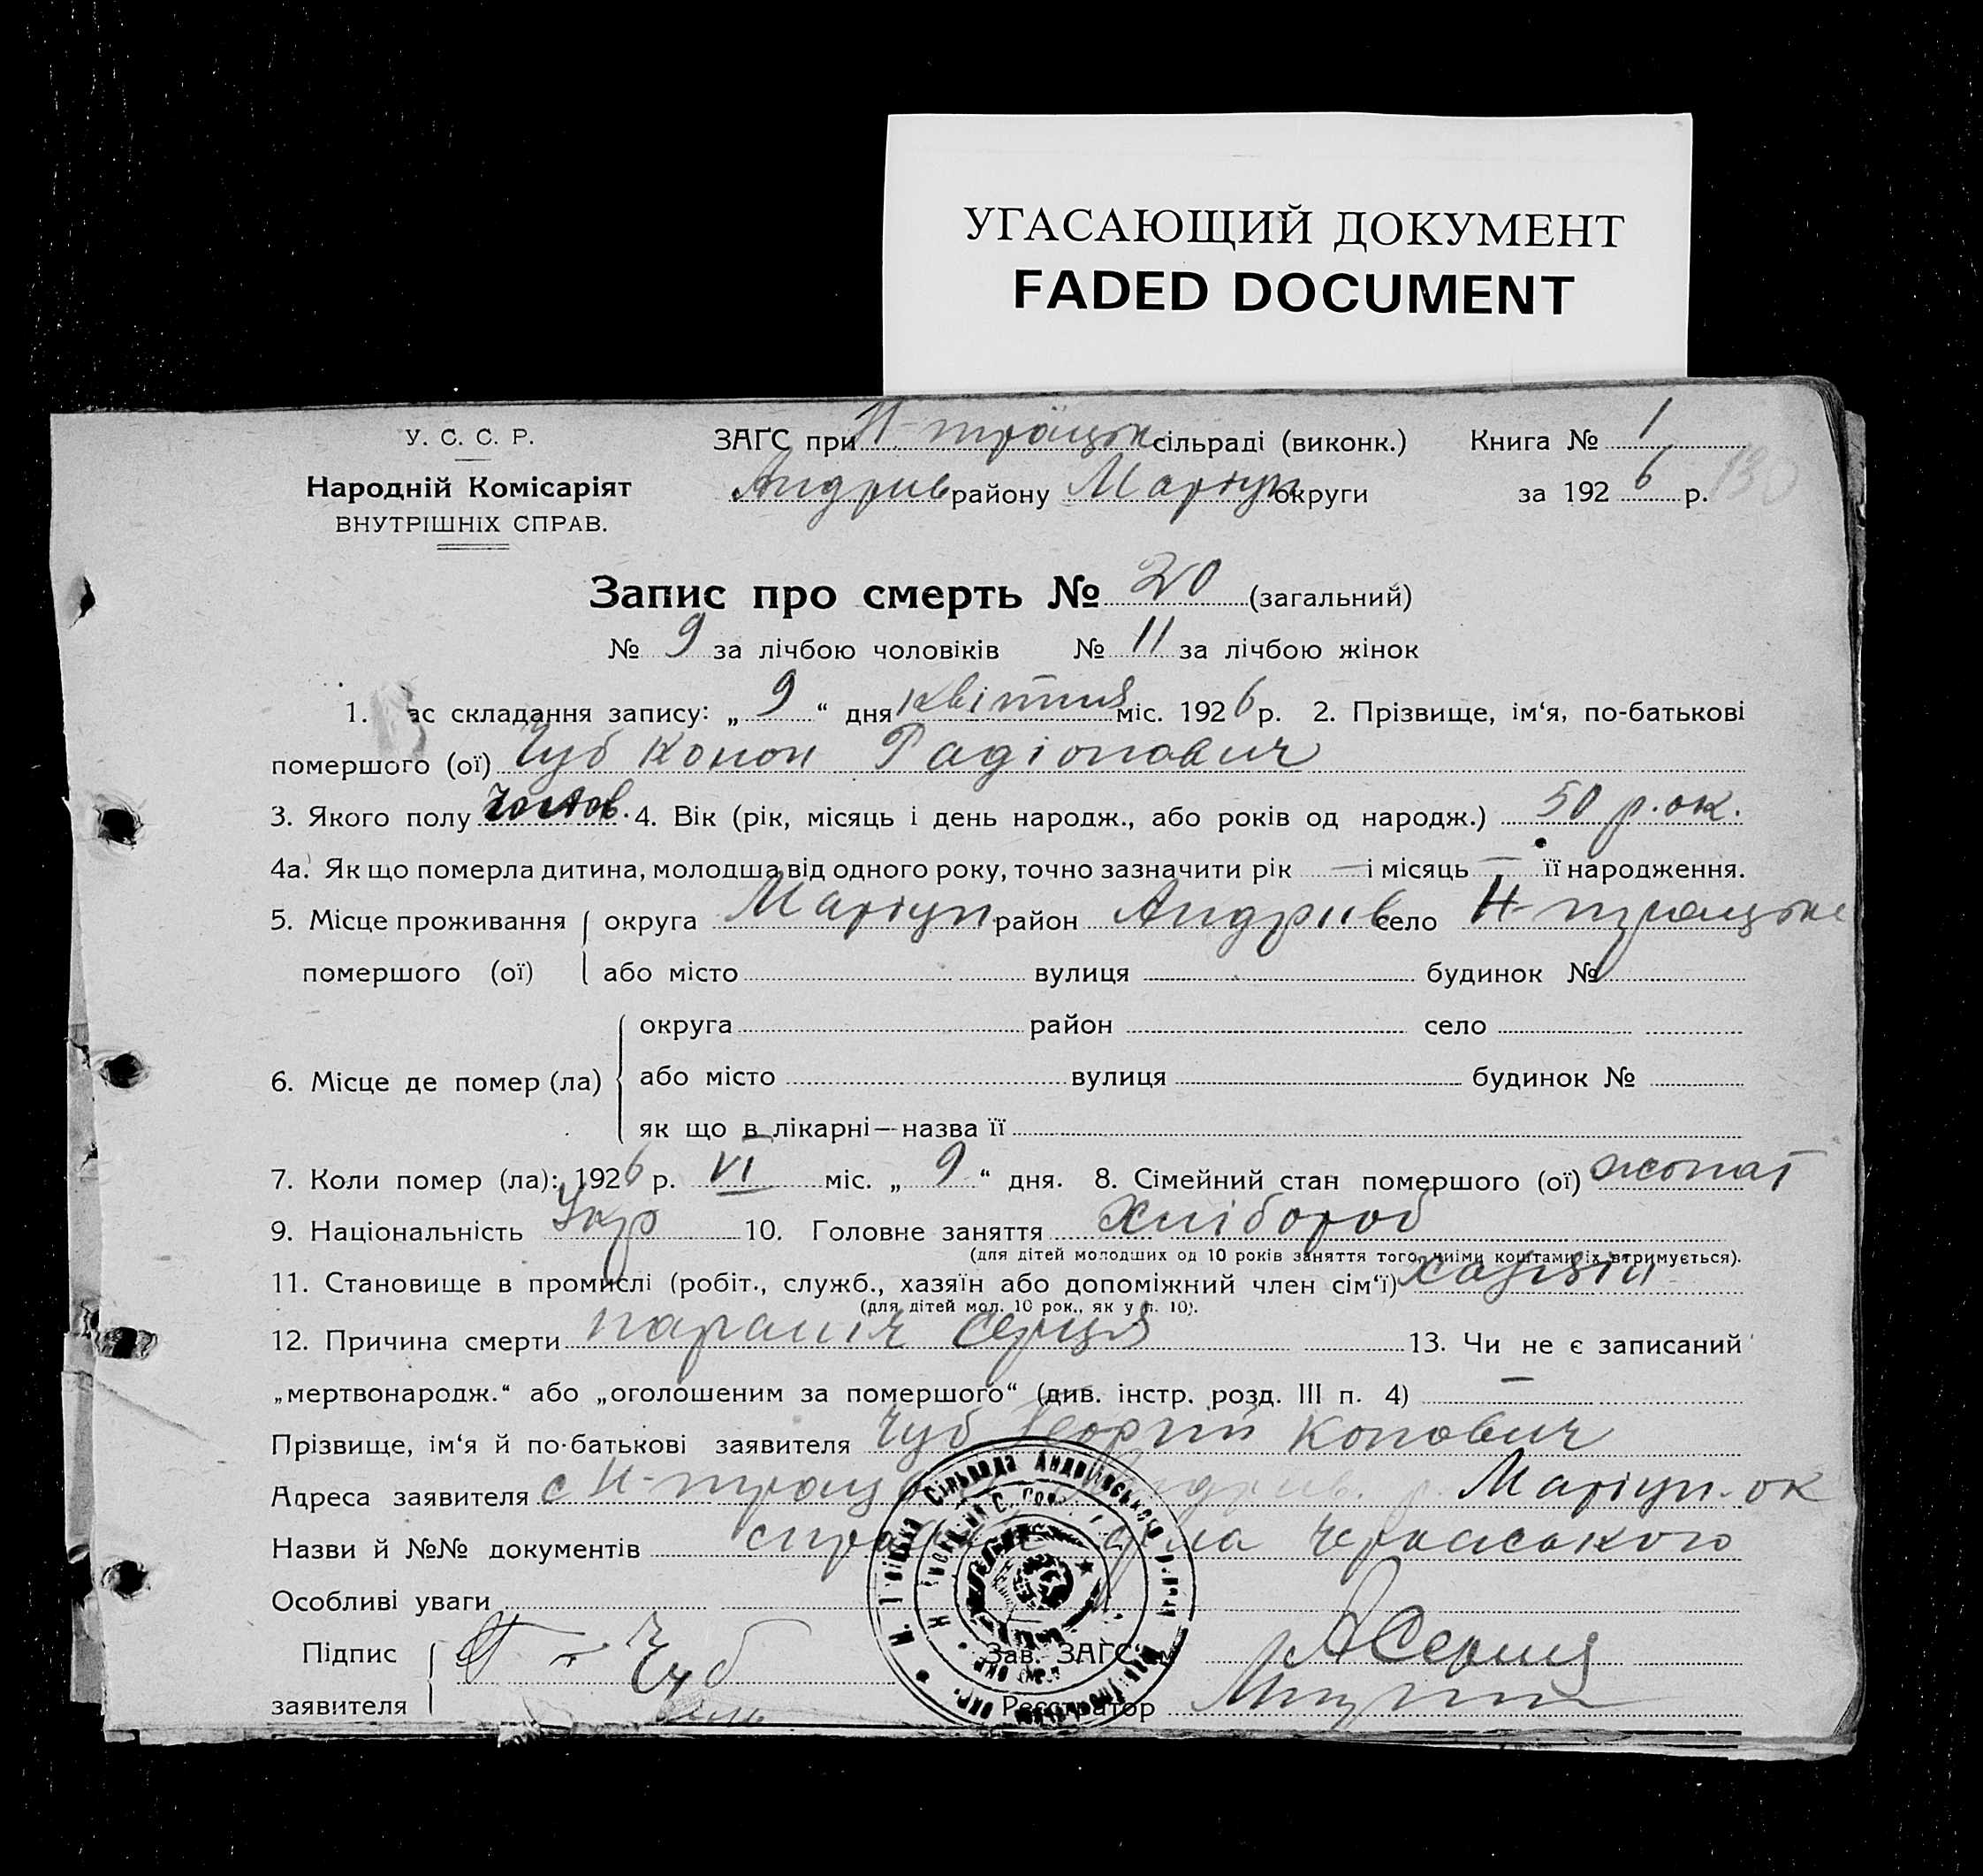 УГАСАЮЩИЙ ДОКУМЕНТ
FADED DOCUMENT
У. С. С. Р.
Народній Комісаріят
ВНУТРІШНІХ СПРАВ.
ЗАҐС при Н-троіцьк сільраді (виконк.) Книга № 1
Андрив району Маріуп. округи за 1926 р. 130
Запис про смерть № 20 (загальний)
№ 9 за лічбою чоловіків № 11 за лічбою жінок
1. ас складання запису: „ 9 “ дня квітня міс. 1926 р. 2. Прізвище, ім‘я, по-батькові
помершого (ої) Чуб Конон Радіонович
3. Якого полу чолов. 4. Вік (рік, місяць і день народж., або років од народж.) 50 р. ок.
4а. Як що померла дитина, молодша від одного року, точно зазначити рік — і місяць — її народження.
5. Місце проживання округа Маріуп. район Андрив село Н-троицьке
помершого (ої) або місто вулиця будинок №
округа район село
6. Місце де помер (ла) або місто вулиця будинок №
як що в лікарні—назва її
7. Коли помер (ла): 1926 р. VI міс. „ 9 “ дня. 8. Сімейний стан помершого (ої) жонат
9. Національність Укр 10. Головне заняття Хлібороб
(для дітей молодших од 10 років заняття того, чиїми коштами їх втримується).
11. Становище в промислі (робіт., служб., хазяїн або допоміжний член сім‘ї) хазяїн
(для дітей мол. 10 рок., як у п. 10).
12. Причина смерти параліч серця 13. Чи не є записаний
„мертвонародж.“ або „оголошеним за помершого“ (див. інстр. розд. III п. 4) —
Прізвище, ім‘я й по-батькові заявителя Чуб Георгій Конович
Адреса заявителя с Н-троиц Андрив. р. Маріуп. ок
Назви й №№ документів Черкаського
Особливі уваги
Підпис Чуб Зав. ЗАҐС‘м
заявителя Реєстратор
Сільрада Андріївського